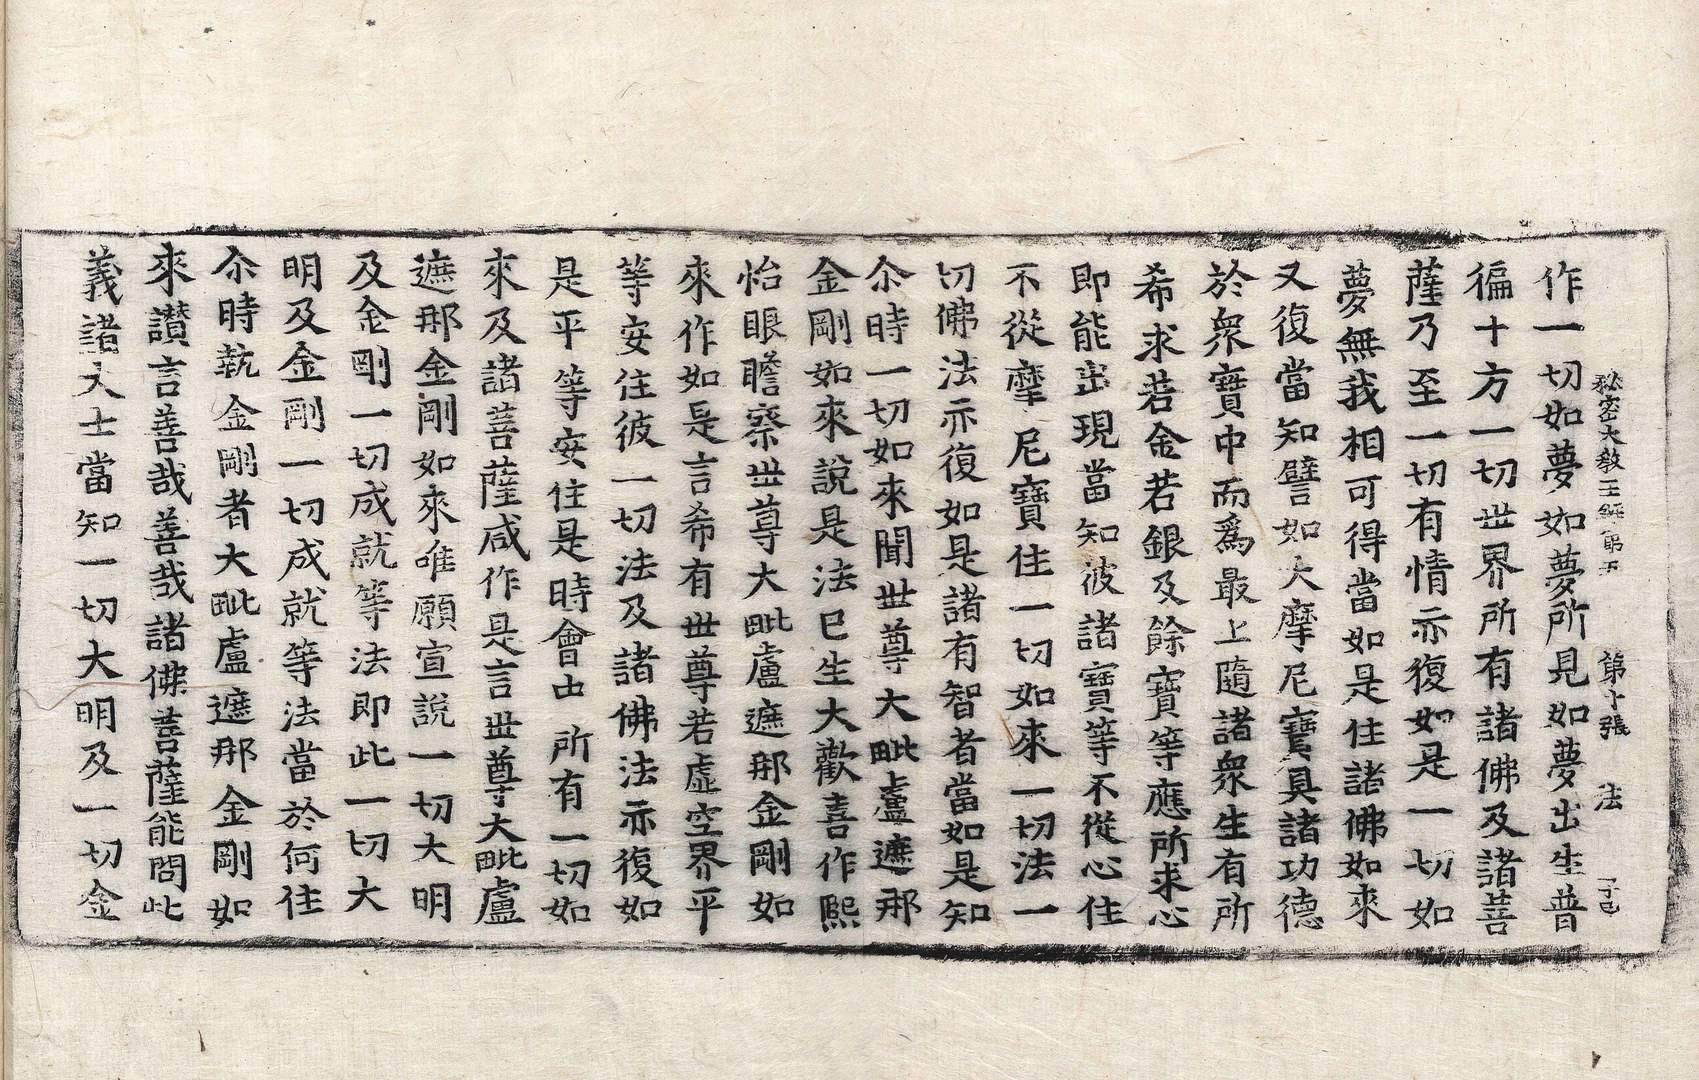 秘密大教王經第五　第十張　法
作一切如夢如夢所見如夢出生普
徧十方一切世界所有諸佛及諸菩
薩乃至一切有情亦復如是一切如
夢無我相可得當如是住諸佛如來
又復當知譬如大摩尼寶具諸功德
於衆寶中而爲最上隨諸衆生有所
希求若金若銀及餘寶等應所求心
即能出現當知彼諸寶等不從心住
不從摩尼寶住一切如來一切法一
切佛法亦復如是諸有智者當如是知
尒時一切如來聞世尊大毗盧遮那
金剛如來說是法已生大歡喜作熙
怡眼瞻察世尊大毗盧遮那金剛如
來作如是言希有世尊若虛空界平
等安住彼一切法及諸佛法亦復如
是平等安住是時會中所有一切如
來及諸菩薩咸作是言世尊大毗盧
遮那金剛如來唯願宣說一切大明
及金剛一切成就等法即此一切大
明及金剛一切成就等法當於何住
尒時執金剛者大毗盧遮那金剛如
來讃言善哉善哉諸佛菩薩能問此
義諸大士當知一切大明及一切金